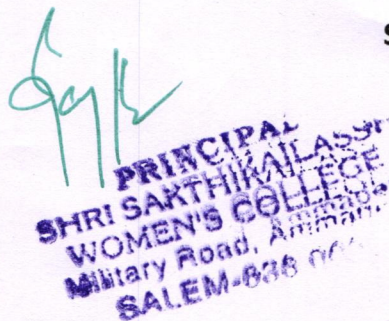 S
PRINCIPAL
SHRI SAKTHIKAILASSH
WOMEN'S COLLEGE
Military Road,
SALEM-636